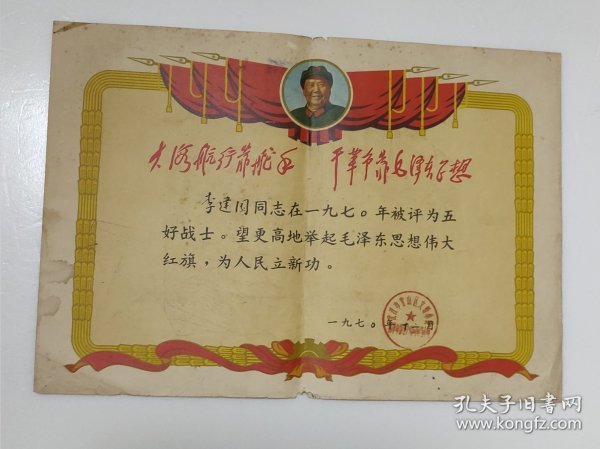 大海航行靠舵手 干革命靠毛泽东思想
李建国同志在一九七〇年被评为五
好战士。望更高地举起毛泽东思想伟大
红旗，为人民立新功。
一九七〇年十二月
孔夫子旧书网
www.kongfz.com